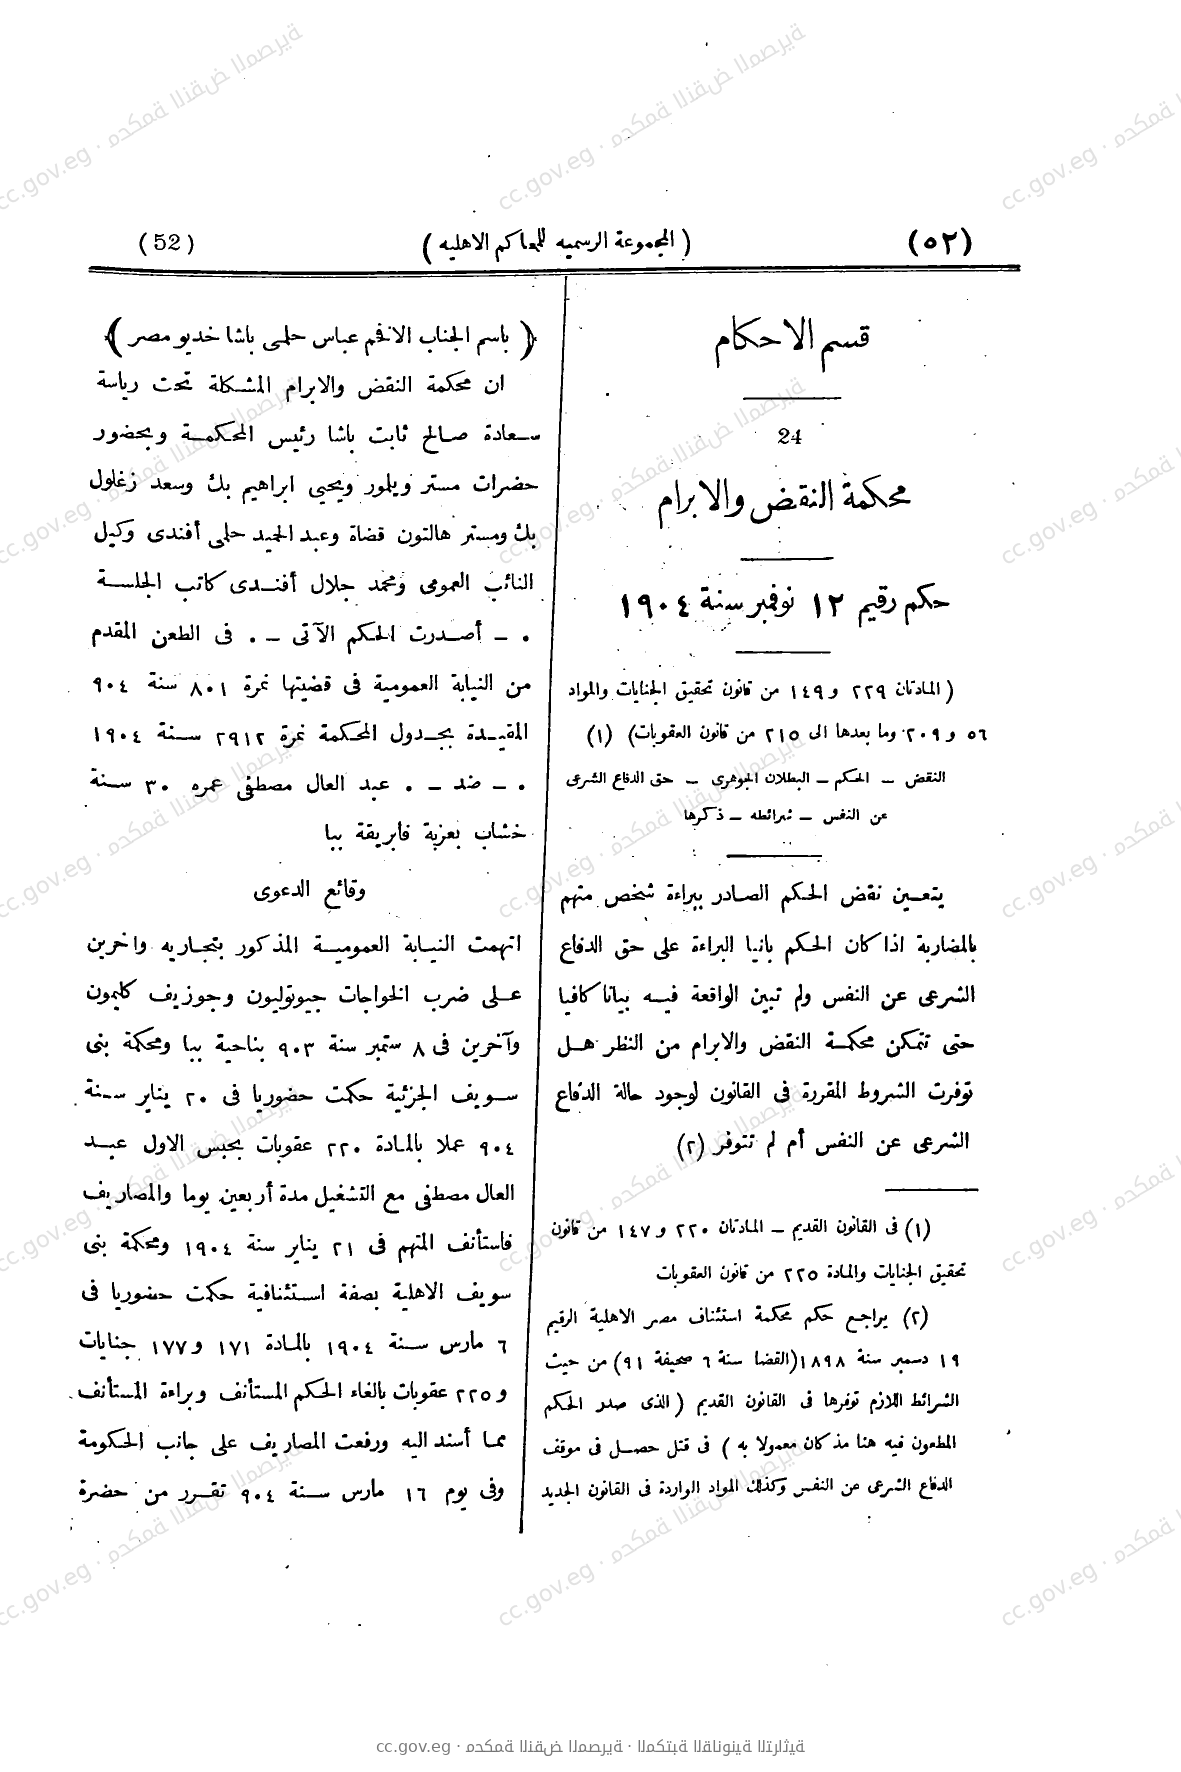 (٥٢)
( المجموعة الرسمية للمحاكم الاهليه )
(52)
قسم الاحكام
24
محكمة النقض والابرام
حكم رقيم ١٢ نوفمبر سنة ١٩٠٤
( المادتان ٢٢٩ و١٤٩ من قانون تحقيق الجنايات والمواد
٥٦ و٢٠٩ وما بعدها الى ٢١٥ من قانون العقوبات) (١)
النقض ــ الحكم ــ البطلان الجوهرى ــ حق الدفاع الشرعى
عن النفس ــ شرائطه ــ ذكرها
يتعين نقض الحكم الصادر ببراءة شخص متهم
بالمضاربة اذا كان الحكم بانيا البراءة على حق الدفاع
الشرعى عن النفس ولم تبين الواقعة فيه بيانا كافيا
حتى تتمكن محكمة النقض والابرام من النظر هل
توفرت الشروط المقررة فى القانون لوجود حالة الدفاع
الشرعى عن النفس أم لم تتوفر (٢)
(١) فى القانون القديم ــ المادتان ٢٢٠ و١٤٧ من قانون
تحقيق الجنايات والمادة ٢٢٥ من قانون العقوبات
(٢) يراجع حكم محكمة استئناف مصر الاهلية الرقيم
١٩ دسمبر سنة ١٨٩٨ (القضا سنة ٦ صحيفة ٩١) من حيث
الشرائط اللازم توفرها فى القانون القديم ( الذى صدر الحكم
المطعون فيه هنا مذ كان معمولا به ) فى قتل حصل فى موقف
الدفاع الشرعى عن النفس وكذلك المواد الواردة فى القانون الجديد
( باسم الجناب الافخم عباس حلمى باشا خديو مصر )
ان محكمة النقض والابرام المشكلة تحت رياسة
سعادة صالح ثابت باشا رئيس المحكمة وبحضور
حضرات مستر ويلمور ويحيى ابراهيم بك وسعد زغلول
بك ومستر هالتون قضاة وعبد الحميد حلمى أفندى وكيل
النائب العمومى ومحمد جلال أفندى كاتب الجلسة
٠ ــ أصدرت الحكم الآتى ــ ٠ فى الطعن المقدم
من النيابة العمومية فى قضيتها نمرة ٨٠١ سنة ٩٠٤
المقيدة بجدول المحكمة نمرة ٢٩١٢ سنة ١٩٠٤
٠ ــ ضد ــ ٠ عبد العال مصطفى عمره ٣٠ سنة
خشاب بعزبة فابريقة ببا
وقائع الدعوى
اتهمت النيابة العمومية المذكور بتجاريه واخرين
على ضرب الخواجات جيوتوليون وجوزيف كليمون
وآخرين فى ٨ ستمبر سنة ٩٠٣ بناحية ببا ومحكمة بنى
سويف الجزئية حكمت حضوريا فى ٢٠ يناير سنة
٩٠٤ عملا بالمادة ٢٢٠ عقوبات بحبس الاول عبد
العال مصطفى مع التشغيل مدة أربعين يوما والمصاريف
فاستأنف المتهم فى ٢١ يناير سنة ١٩٠٤ ومحكمة بنى
سويف الاهلية بصفة استئنافية حكمت حضوريا فى
٦ مارس سنة ١٩٠٤ بالمادة ١٧١ و١٧٧ جنايات
و٢٢٥ عقوبات بالغاء الحكم المستأنف وبراءة المستأنف
مما أسند اليه ورفعت المصاريف على جانب الحكومة
وفى يوم ١٦ مارس سنة ٩٠٤ تقرر من حضرة
cc.gov.eg · محكمة النقض المصرية · المكتبة القانونية التراثية